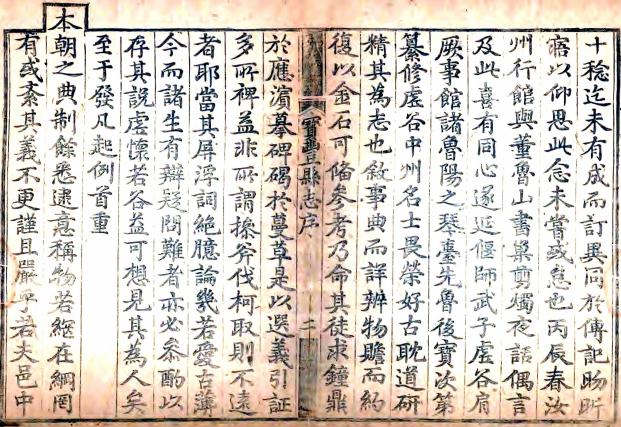 十稔迄未有成而訂異同於傳記昕
寤以仰思此念未嘗或怠也丙辰春汝
州行館與董魯山書巢剪燭夜話偶言
及此喜有同心遂延偃師武子虛谷肩
厥事館諸魯陽之琴臺先魯後寶次第
纂修虛谷中州名士畏榮好古耽道研
精其為志也敘事典而詳辨物贍而約
復以金石可俻參考乃命其徒求鐘鼎
寶豐縣志序
二
於應濵摹碑碣於蔓草是以選義引証
多所裨益非所謂操斧伐柯取則不遠
者耶當其屏浮詞絶臆論幾若愛古薄
今而諸生有辯疑問難者亦必叅酌以
存其說虛懷若谷益可想見其為人矣
至于發凡起例首重
本朝之典制餘悉逮意稱物若網在綱罔
有或紊其義不更謹且嚴乎若夫邑中